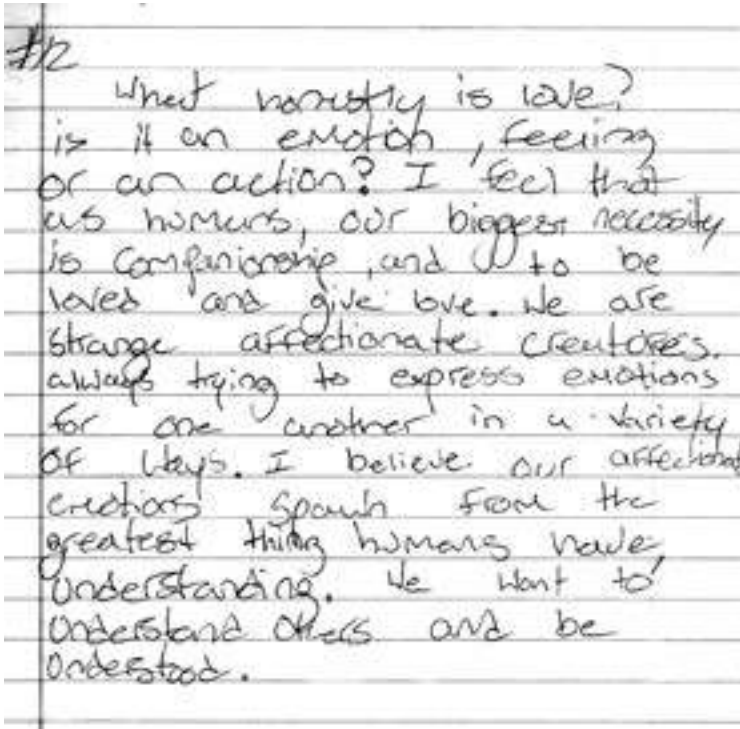 #12
What honestly is love?
is it an emotion, feeling
or an action? I feel that
us humans, our biggest necessity
is companionship, and to be
loved and give love. We are
strange affectionate creatures.
always trying to express emotions
for one another in a variety
of ways. I believe our affectionate
emotions spawn from the
greatest thing humans have,
understanding. We want to
understand others and be
understood.